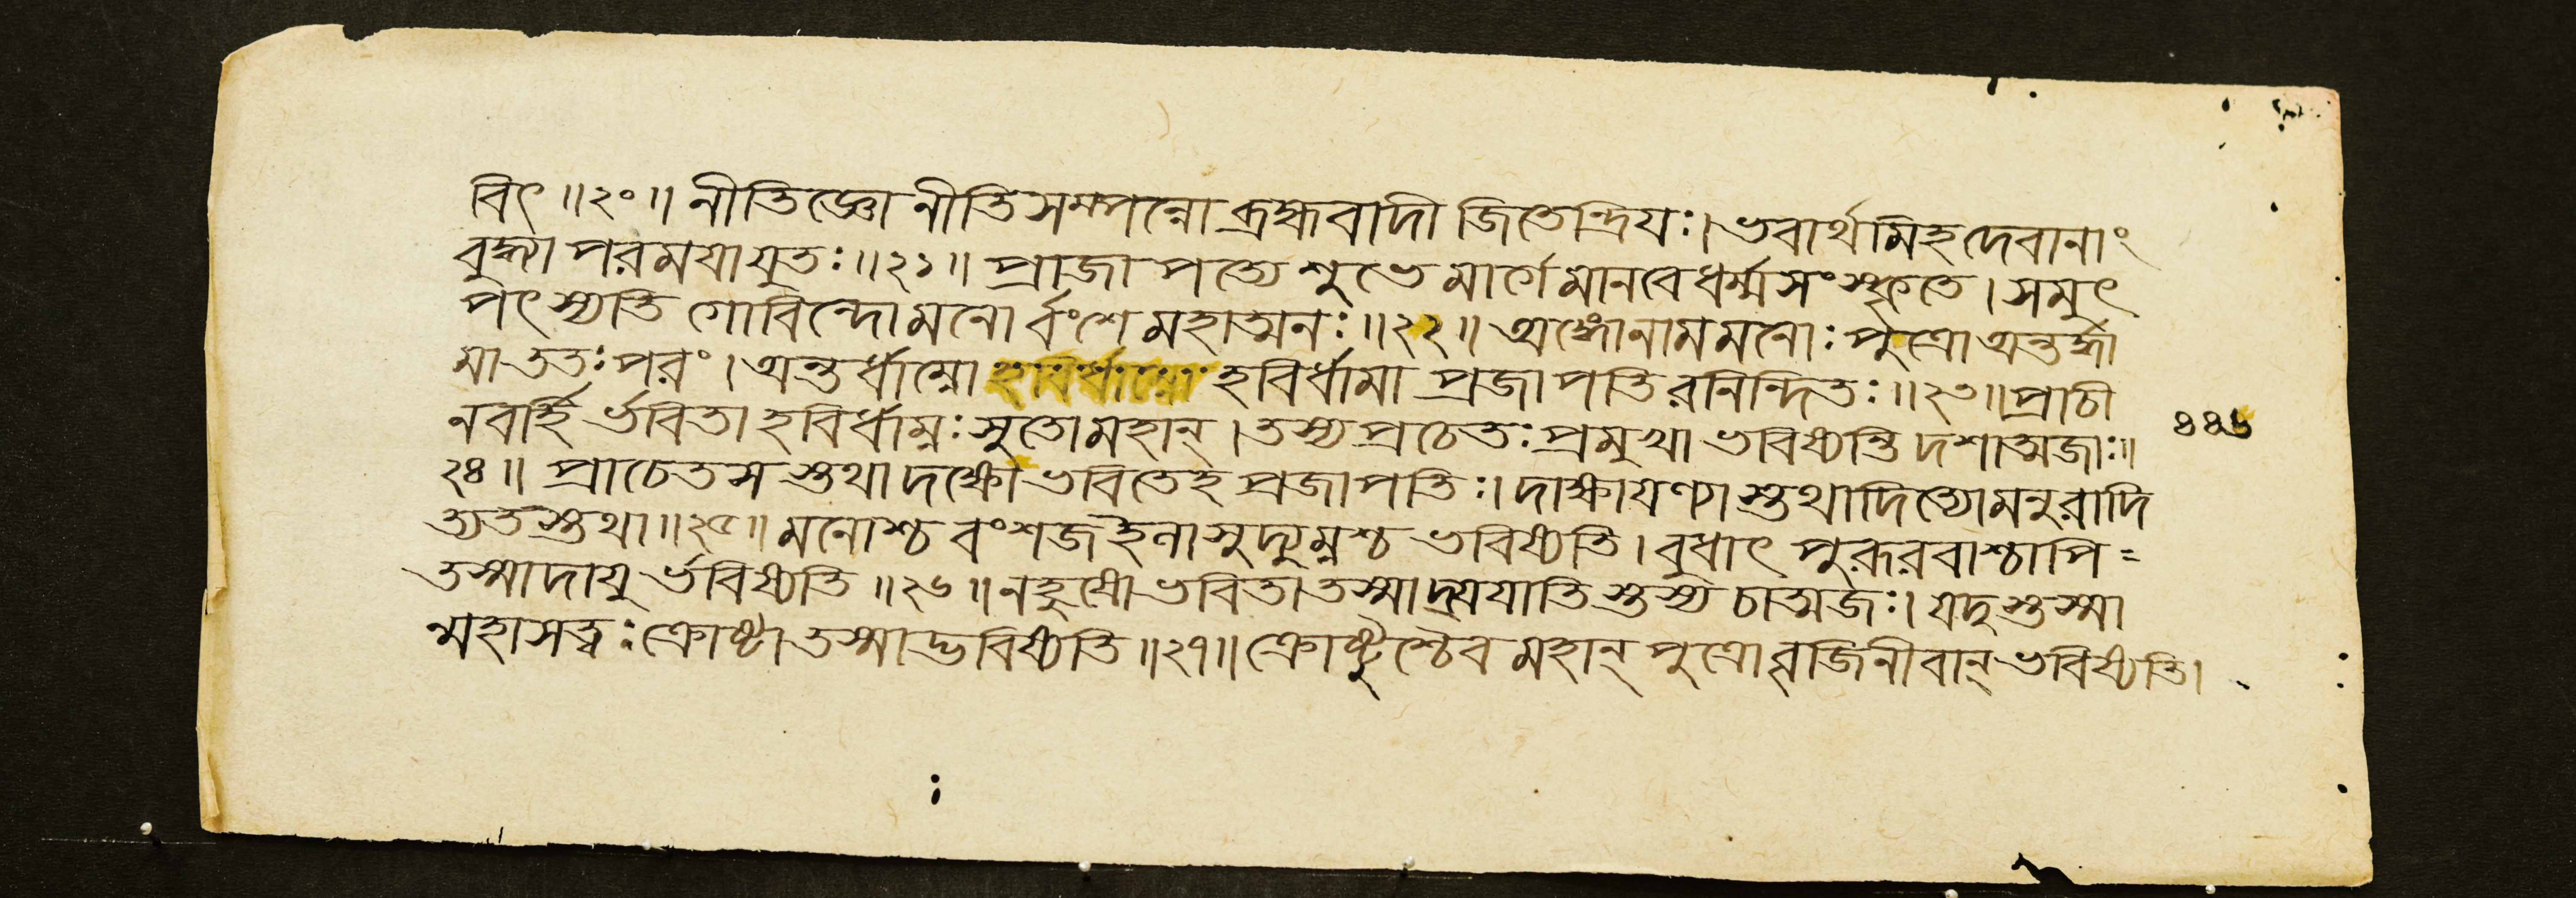 বিৎ ॥২০॥ নীতিজ্ঞো নীতিসম্পন্নো ব্রহ্মবাদী জিতেন্দ্রিযঃ। ভবার্থমিহ দেবানাং
বুদ্ধ্যা পরমযাযুতঃ ॥২১॥ প্রাজাপত্যে শুভে মার্গে মানবে ধর্ম্মসংস্কৃতে। সমুৎ
পৎস্যতি গোবিন্দো মনোর্বংশে মহাত্মনঃ ॥২২॥ অঙ্গোনাম মনোঃ পুত্রো অন্তর্দ্ধা
মা ততঃ পরং। অন্তর্ধাম্নো হবির্ধাম্নো হবির্ধামা প্রজাপতিরনিন্দিতঃ ॥২৩॥ প্রাচী
নবর্হির্ভবিতা হবির্ধাম্নঃ সুতোমহান্। তস্য প্রচেতঃ প্রমুখা ভবিষ্যন্তি দশাত্মজাঃ॥
২৪॥ প্রাচেতসস্তথা দক্ষো ভবিতেহ প্রজাপতিঃ। দাক্ষাযণ্যাস্তথাদিত্যো মনুরাদি
ত্যতস্তথা ॥২৫॥ মনোশ্চ বংশজ ইলা সুদ্যুম্নশ্চ ভবিষ্যতি। বুধাৎ পুরূরবাশ্চাপি=
তস্মাদাযুর্ভবিষ্যতি ॥২৬॥ নহুষো ভবিতা তস্মাদ্যযাতিস্তস্য চাত্মজঃ। যদুস্তস্মা
ন্মহাসত্ত্বঃ ক্রোষ্টা তস্মাদ্ভবিষ্যতি ॥২৭॥ ক্রোষ্টুশ্চৈব মহান্ পুত্রো বৃজিনীবান্ ভবিষ্যতি।
৪৪৬